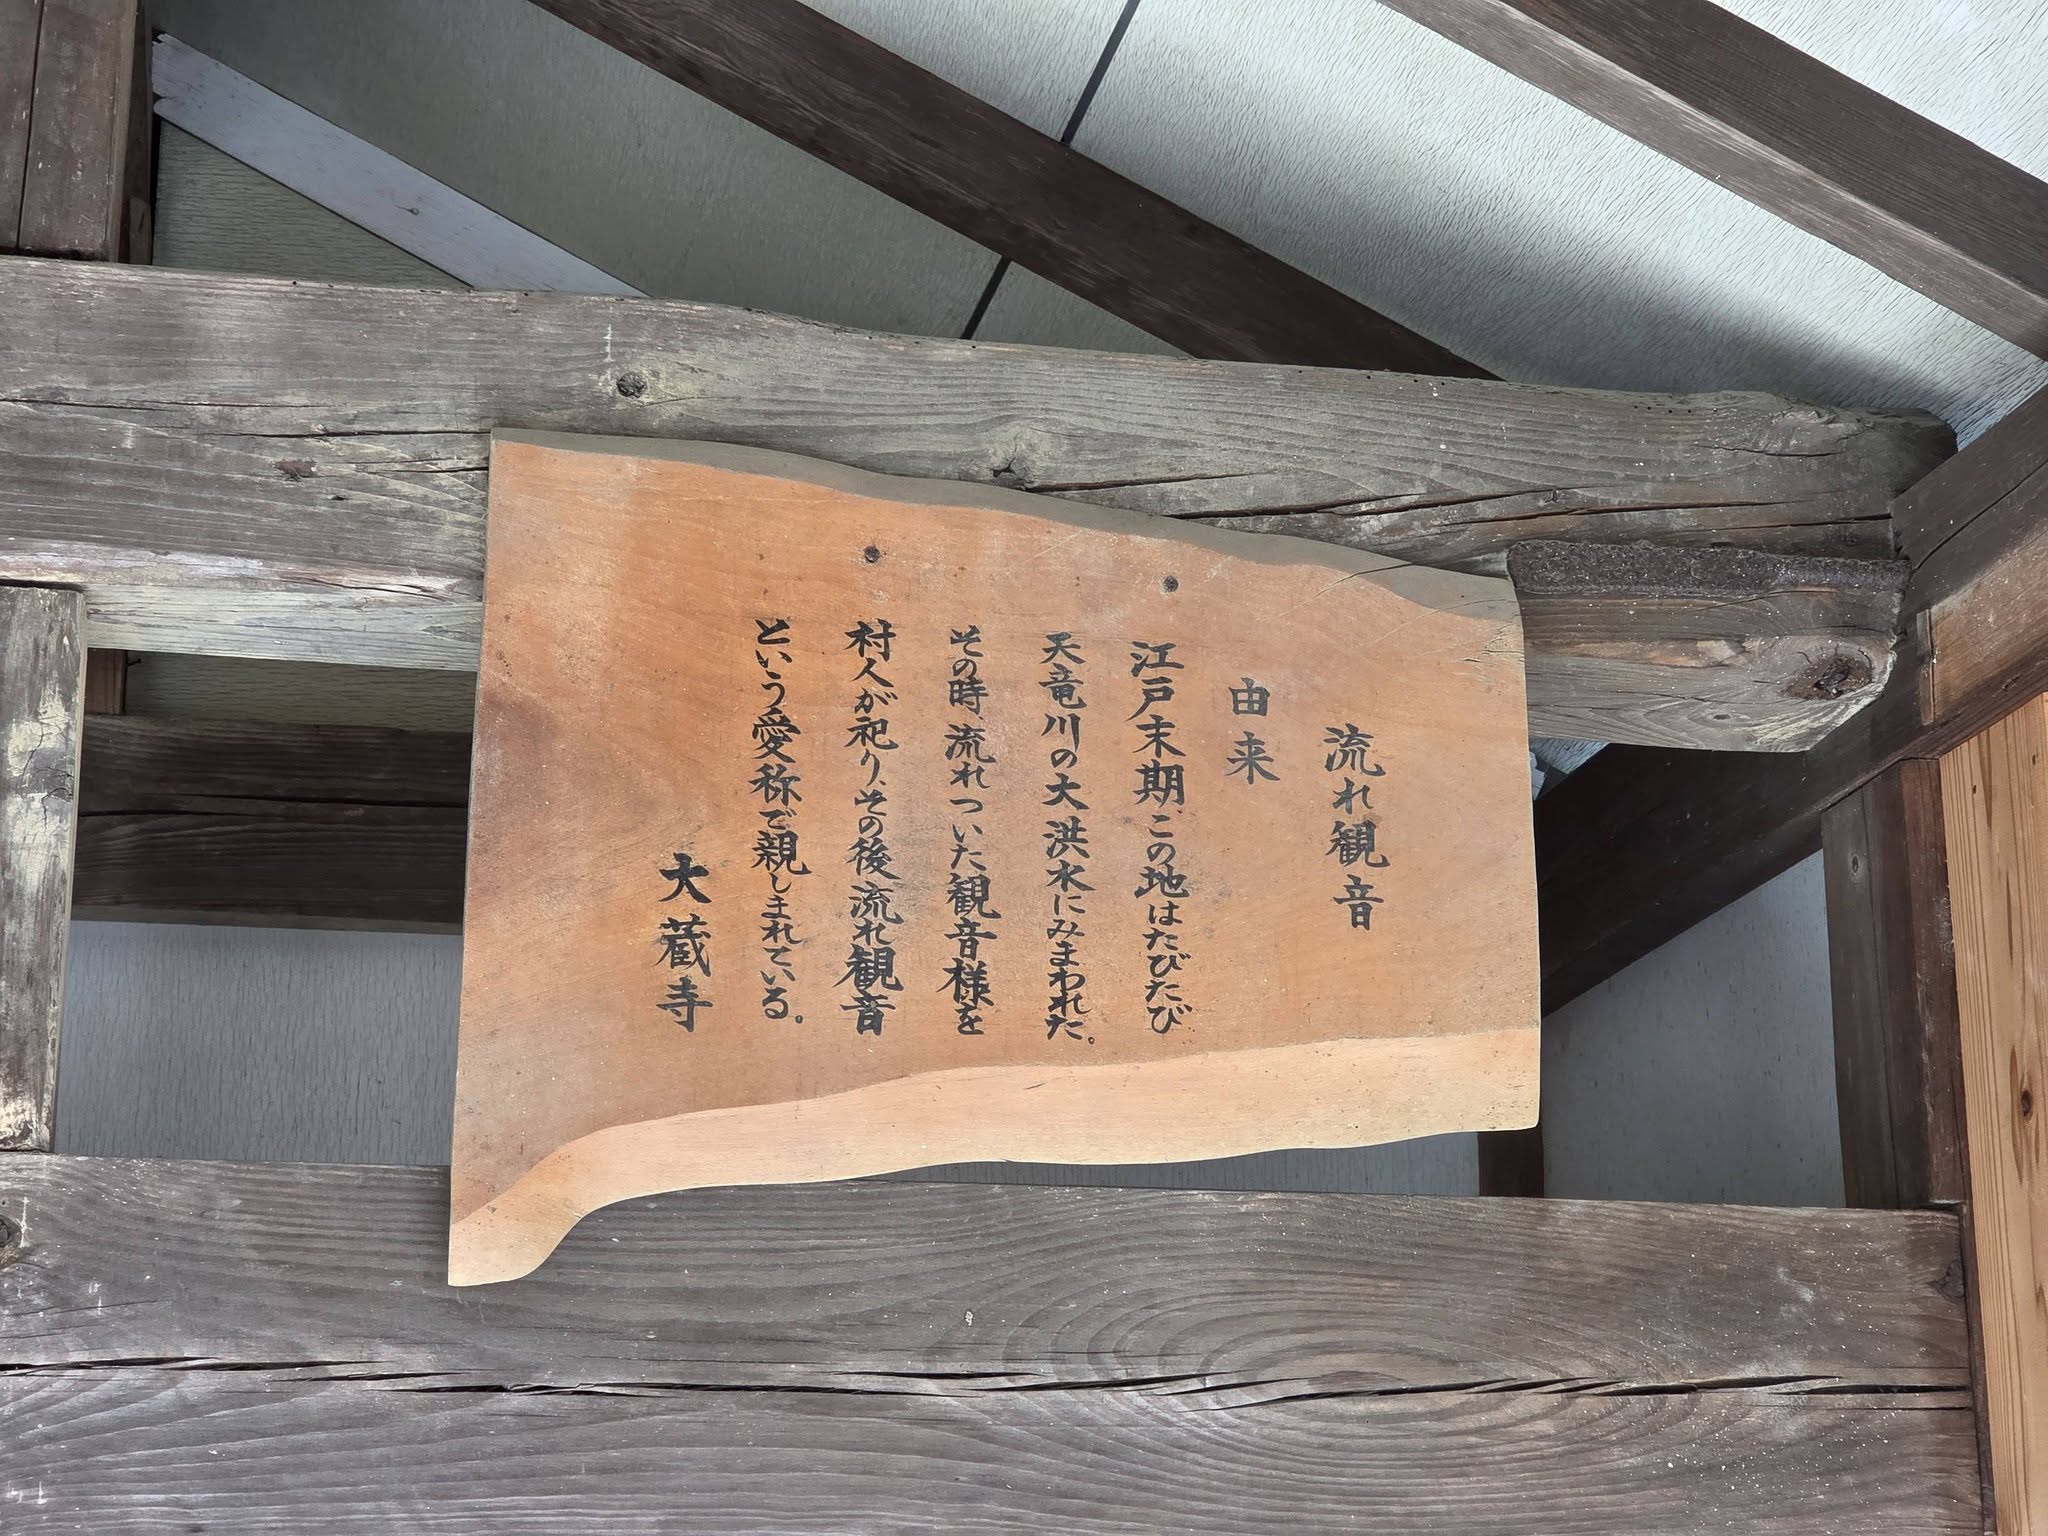 流れ観音
由来
江戸末期、この地はたびたび
天竜川の大洪水にみまわれた。
その時、流れついた観音様を
村人が祀り、その後流れ観音
という愛称で親しまれている。
大蔵寺